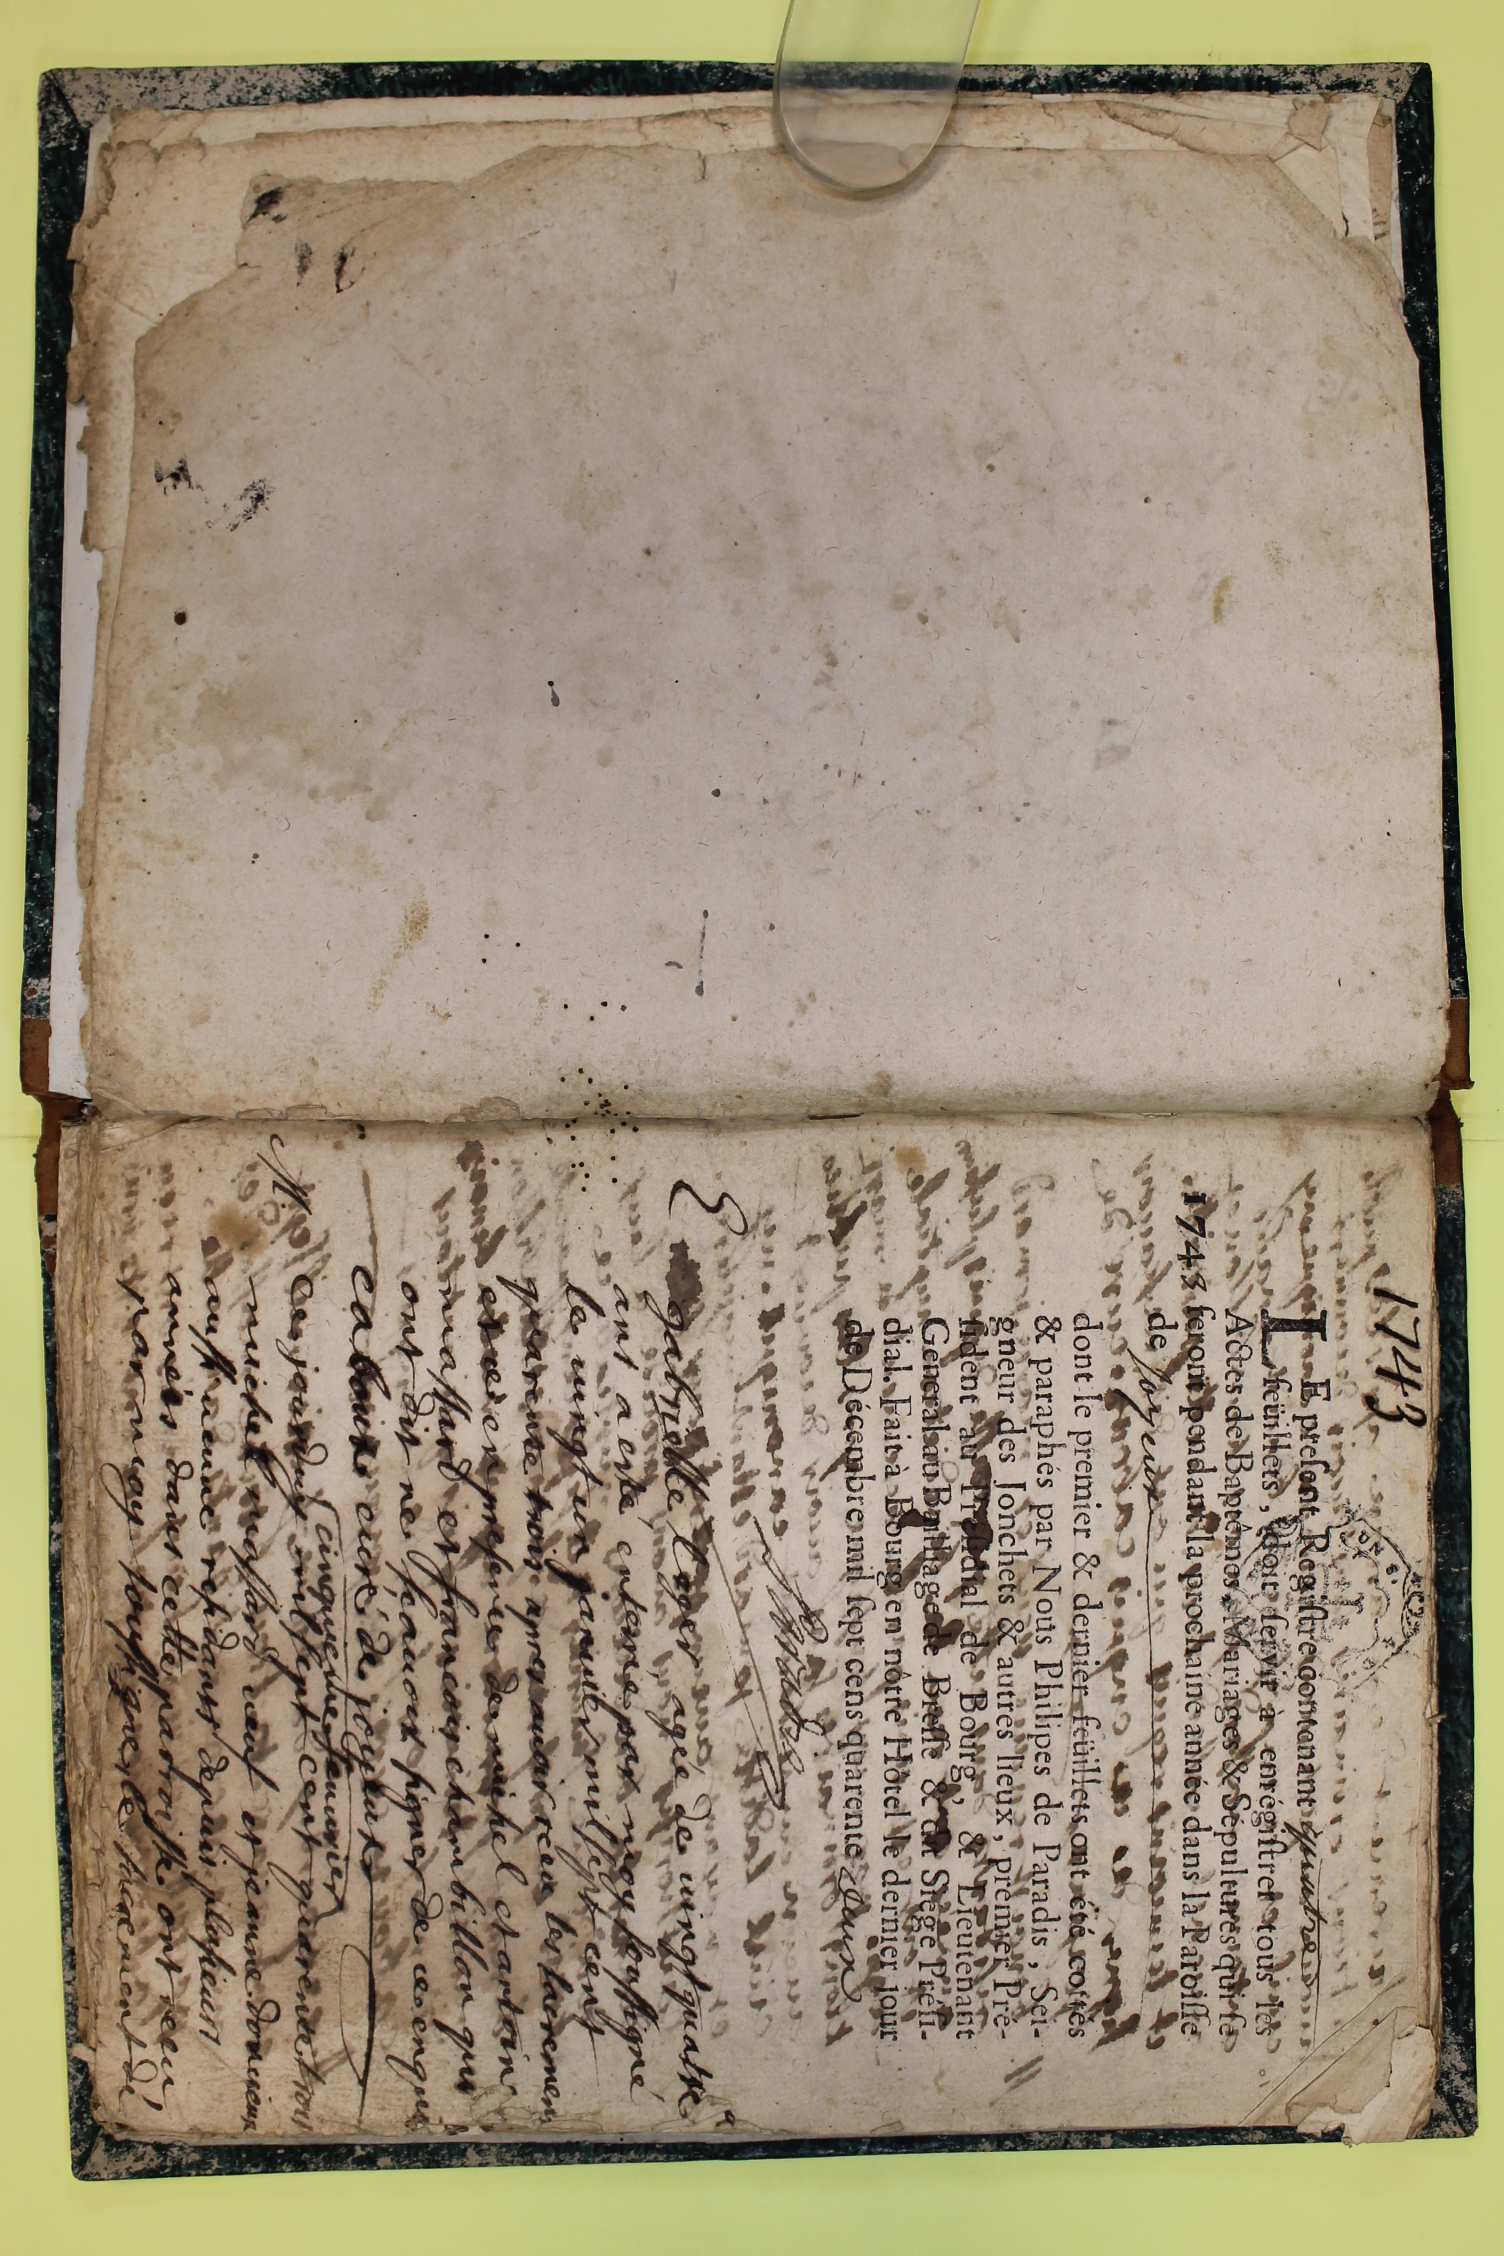 1743
LE present Regiſtre contenant quatre
feüillets, doit ſervir à enrégiſtrer tous les
Actes de Baptêmes, Mariages & Sépultures qui ſe
1743 feront pendant la prochaine année dans la Paroiſſe
de Joyeux
dont le premier & dernier feüillets ont été cottés
& paraphés par Nous Philipes de Paradis, Sei-
gneur des Jonchets & autres lieux, premier Pré-
ſident au Preſidial de Bourg, & Lieutenant
General au Bailliage de Breſſe & dit Siége Préſi-
dial. Fait à Bourg en nôtre Hôtel le dernier jour
de Décembre mil ſept cens quarente deux
Paradis
gabrielle agée de vingt quatre
ans a esté enterré par moy soussigné
le vingt un janvier mil sept cent
quarente trois apres avoir receu les sacremens
en presence de michel et antoine
mastard et francois chambillon qui
ont dit ne scavoir signer de ce enquis
curé de joyeux
cinquieme feuvrier
cejourdhuy mil sept cent quarente trois
michel mastard veuf et jeanne
ausi veuve residants depuis plusieurs
années dans cette parroisse ont receu
par moy soussigné le sacrement de